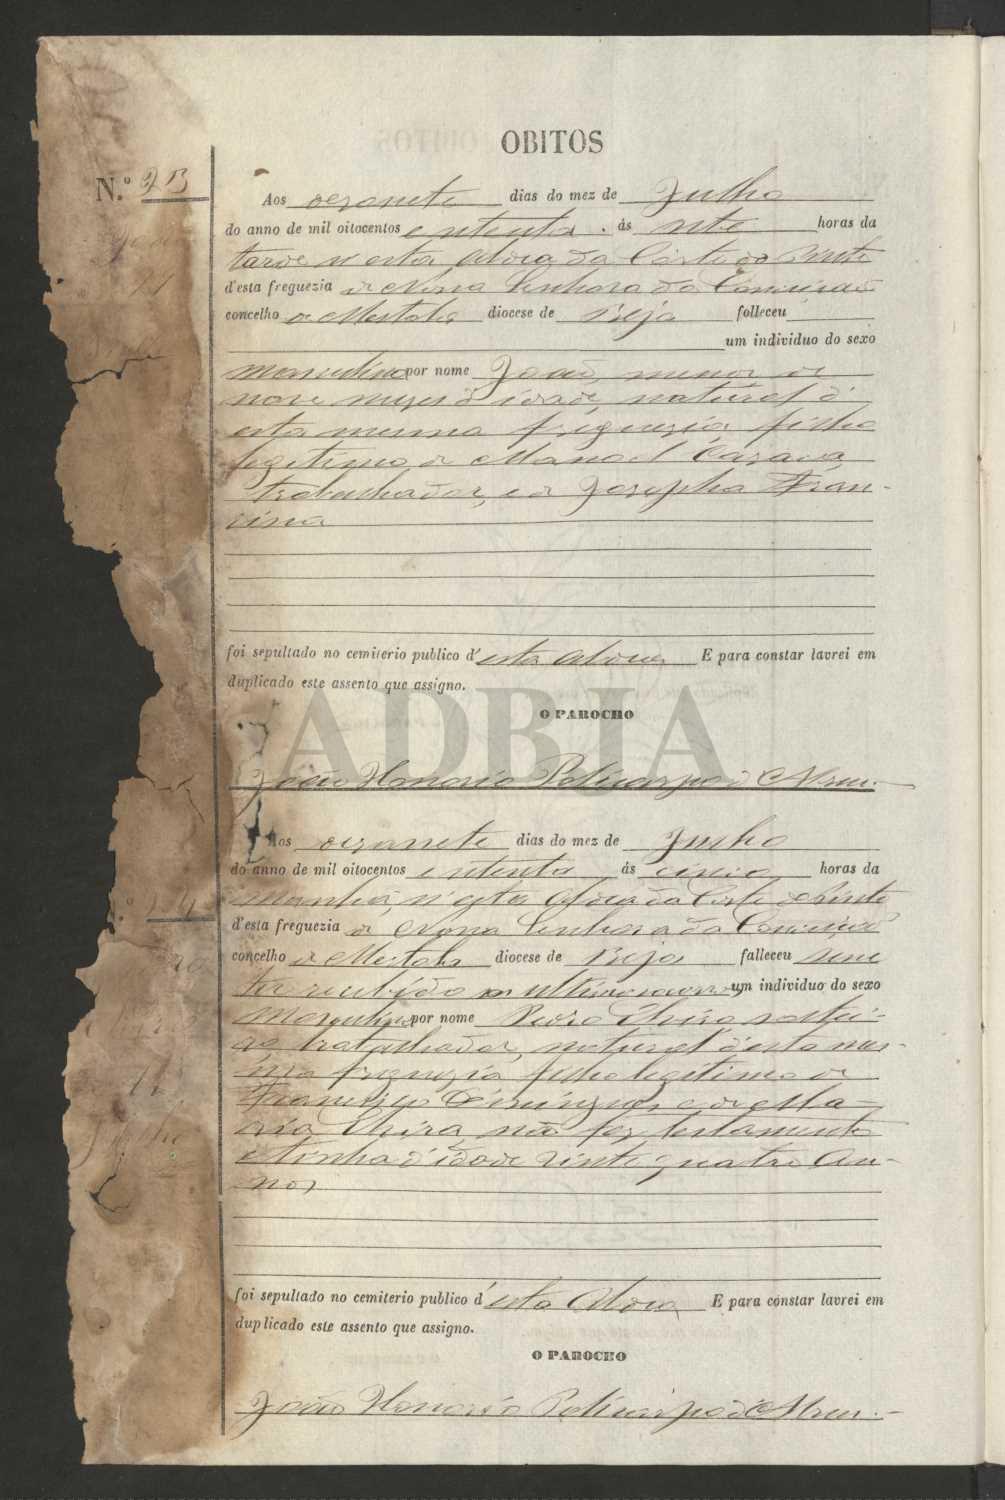 OBITOS
N.º 23
Aos dezasete dias do mez de Julho
do anno de mil oitocentos e setenta. ás sete horas da
tarde n'esta Aldea da Corte do Pinto
d'esta freguezia de Nossa Senhora da Conceição
concelho de Mertola diocese de Beja falleceu
um individuo do sexo
masculino por nome João, menor de
nove mezes d'idade, natural d'
esta mesma freguezia filho
legitimo de Manoel
trabalhador, e de Josepha Fran-
cisca
foi sepultado no cemiterio publico d'esta Aldeia E para constar lavrei em
duplicado este assento que assigno.
O PAROCHO
ADBJA
João Honorio Policarpo d'Abreu.
Aos dezasete dias do mez de Julho
do anno de mil oitocentos e setenta ás cinco horas da
manhã, n'esta Aldea da Corte do Pinto
d'esta freguezia de Nossa Senhora da Conceição
concelho de Mertola diocese de Beja falleceu sem
ter recebido os ultimos um individuo do sexo
masculino por nome Pedro soltei-
ro trabalhador, natural d'esta mes-
ma freguezia filho legitimo de
Francisco Domingues, e de Ma-
ria não fez testamento
e tinha d'idade vinte quatro an-
nos
foi sepultado no cemiterio publico d'esta Aldeia E para constar lavrei em
duplicado este assento que assigno.
O PAROCHO
João Honorio Policarpo d'Abreu.